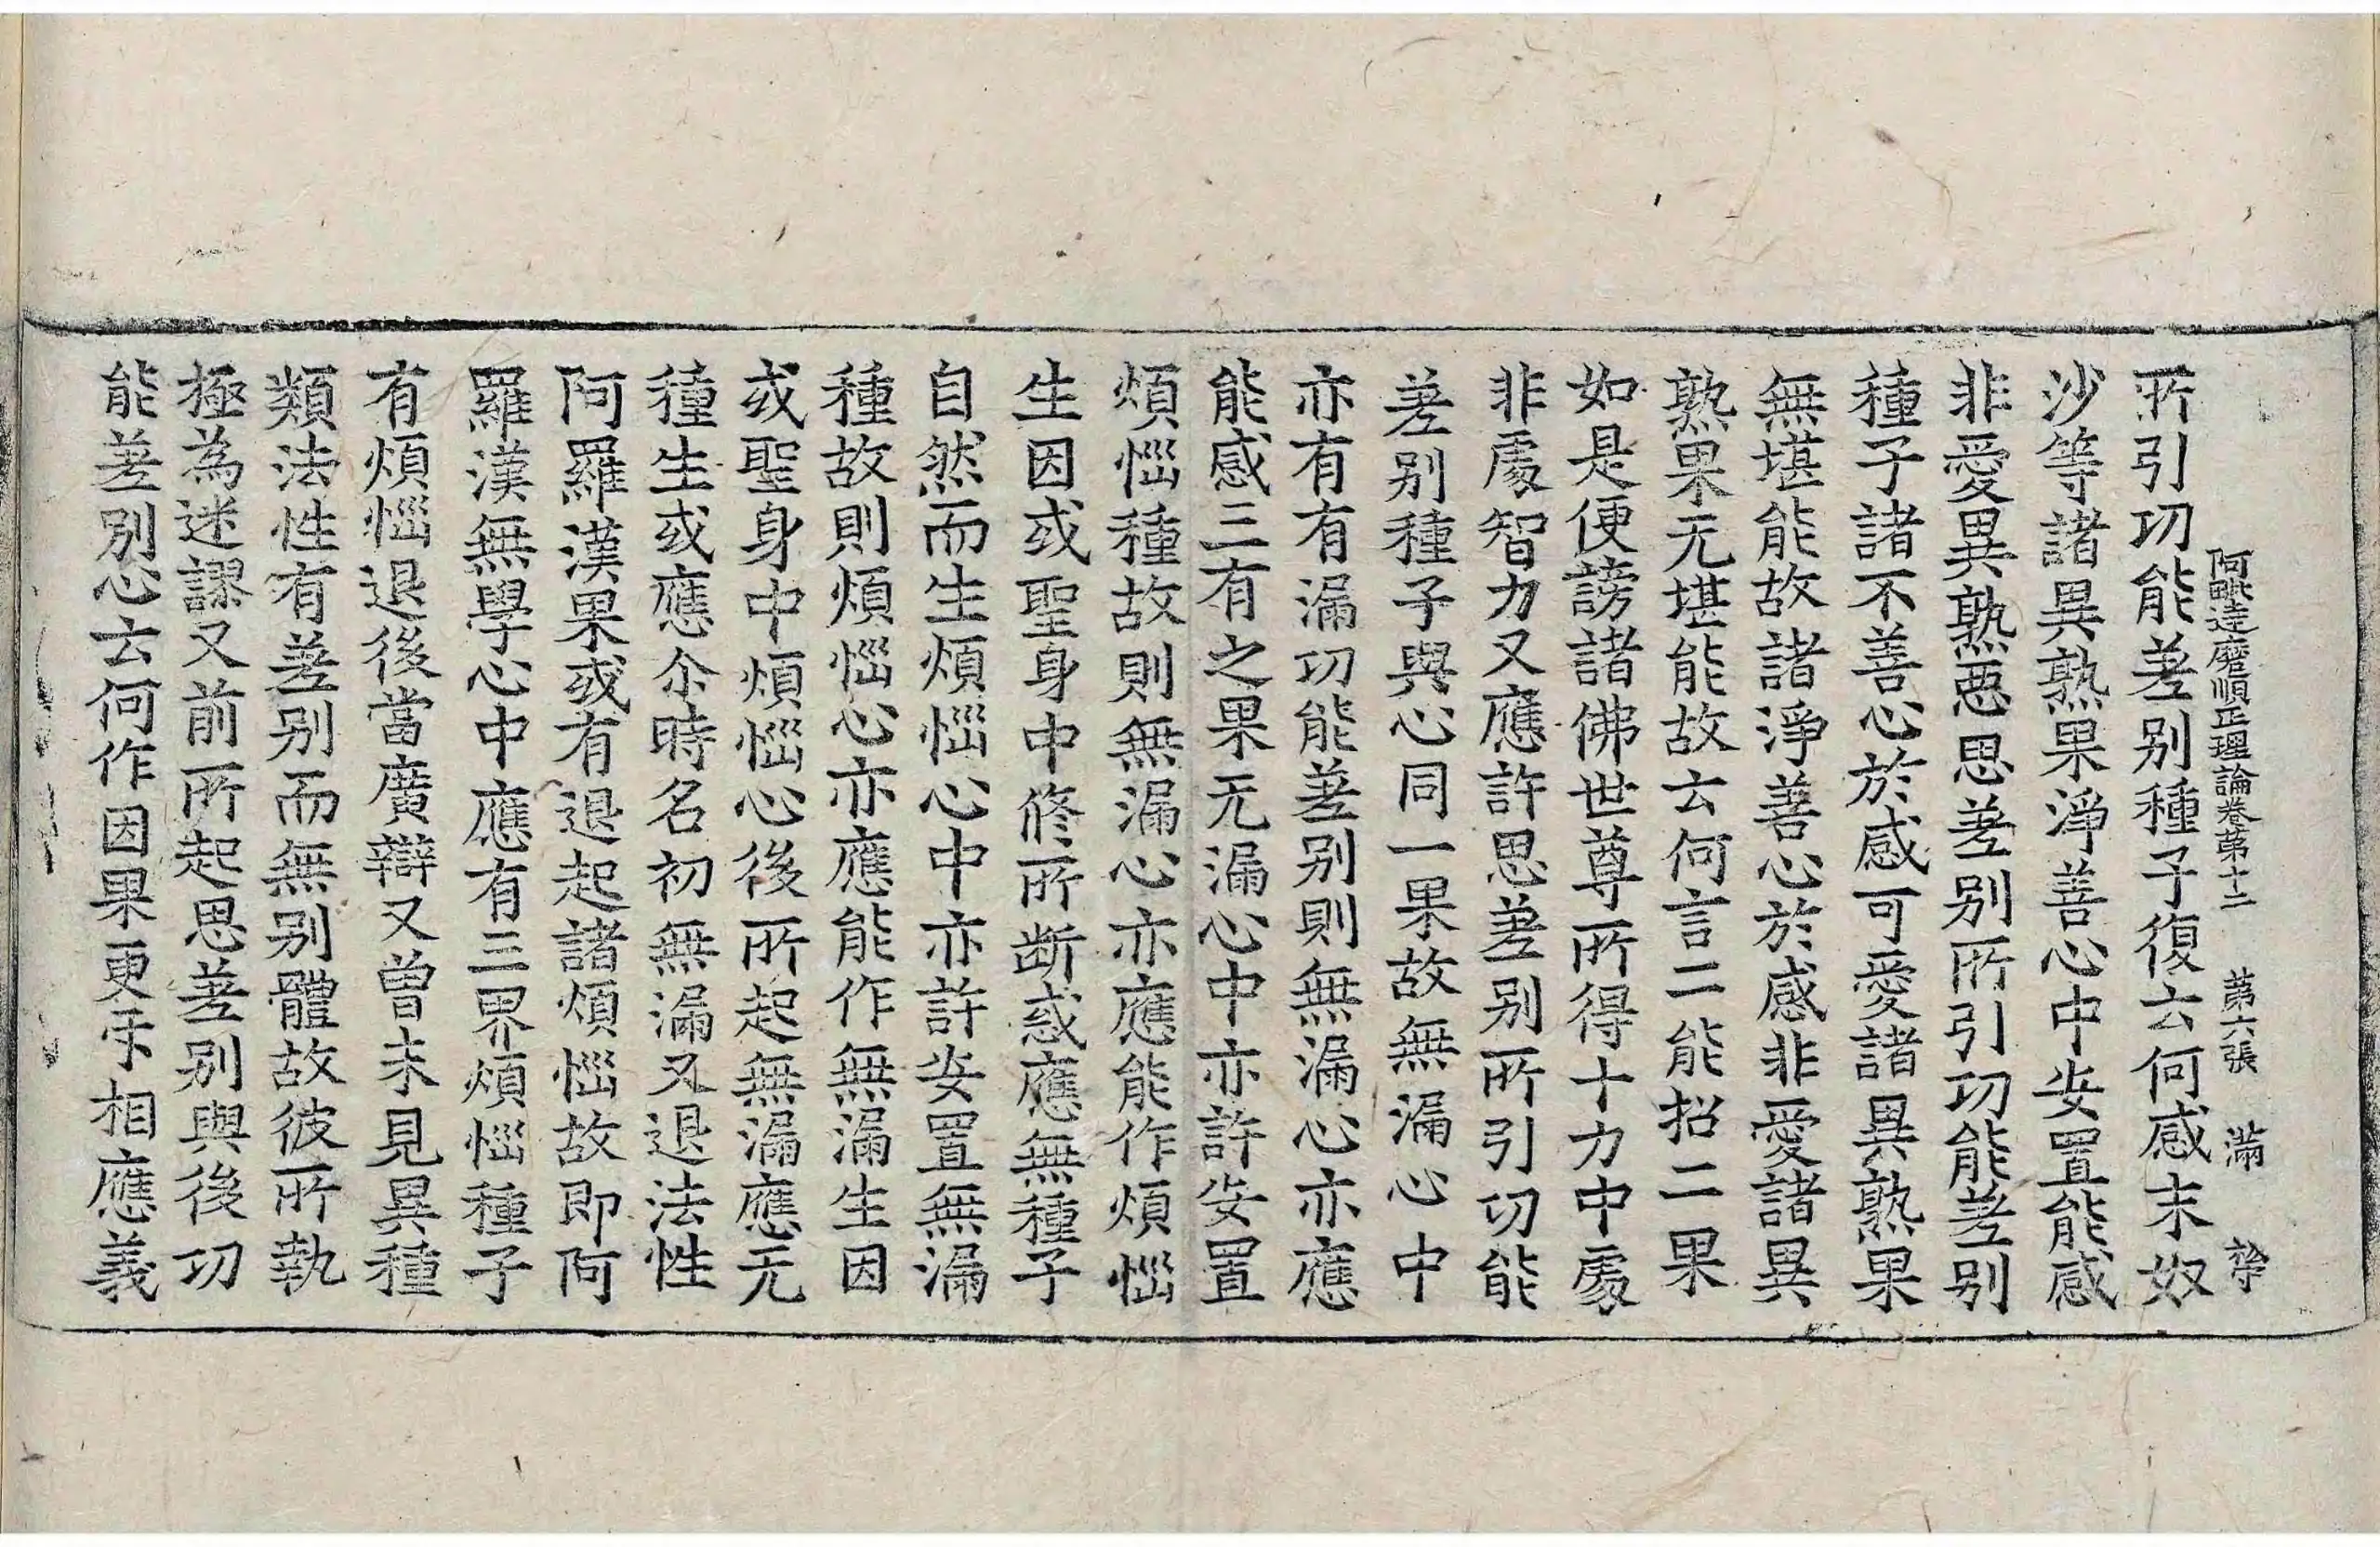 阿毗達磨順正理論卷第十二　第六張　滿
所引功能差別種子復云何感末奴
沙等諸異熟果淨善心中安置能感
非愛異熟惡思差別所引功能差別
種子諸不善心於感可愛諸異熟果
無堪能故諸淨善心於感非愛諸異
熟果无堪能故云何言二能招二果
如是便謗諸佛世尊所得十力中處
非處智力又應許思差別所引功能
差別種子與心同一果故無漏心中
亦有有漏功能差別則無漏心亦應
能感三有之果无漏心中亦許安置
煩惱種故則無漏心亦應能作煩惱
生因或聖身中修所断惑應無種子
自然而生煩惱心中亦許安置無漏
種故則煩惱心亦應能作無漏生因
或聖身中煩惱心後所起無漏應无
種生或應尒時名初無漏又退法性
阿羅漢果或有退起諸煩惱故即阿
羅漢無學心中應有三界煩惱種子
有煩惱退後當廣辯又曾未見異種
類法性有差別而無別體故彼所執
極為迷謬又前所起思差別與後功
能差別心云何作因果更乐相應義